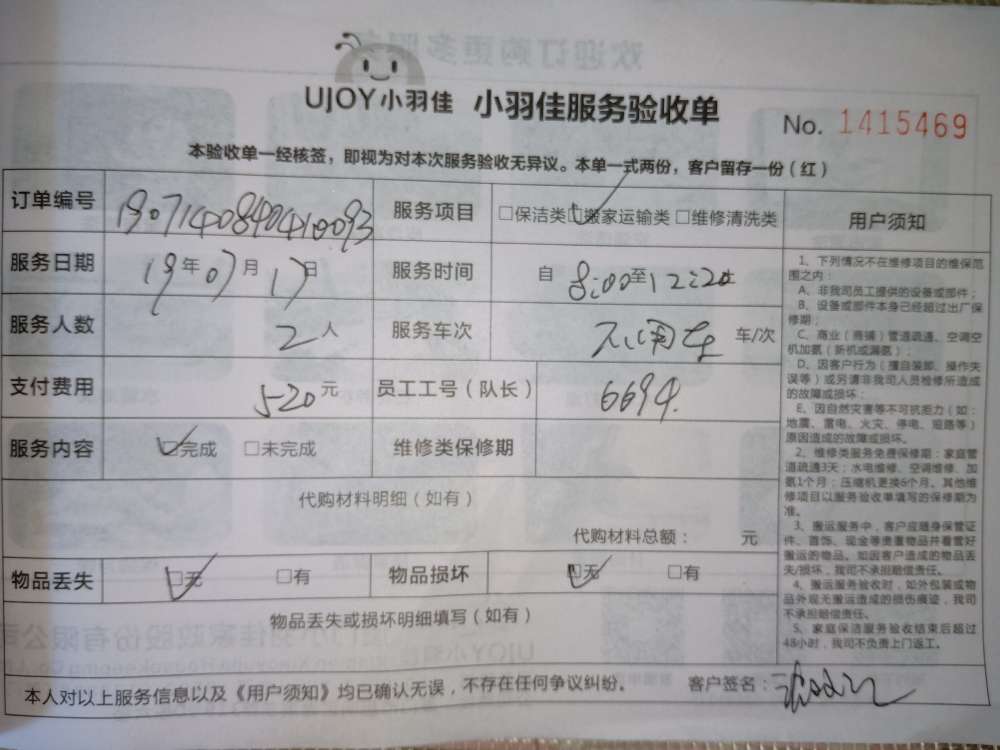 UJOY小羽佳 小羽佳服务验收单
No. 1415469
本验收单一经核签，即视为对本次服务验收无异议。本单一式两份，客户留存一份（红）
订单编号 服务项目 □保洁类 □搬家运输类 □维修清洗类
服务日期 19年07月17日 服务时间 自8:00至12:20
服务人数 2人 服务车次 不用车 车/次
支付费用 520元 员工工号（队长） 6694
服务内容 □完成 □未完成 维修类保修期
代购材料明细（如有）
代购材料总额： 元
物品丢失 □无 □有 物品损坏 □无 □有
物品丢失或损坏明细填写（如有）
本人对以上服务信息以及《用户须知》均已确认无误，不存在任何争议纠纷。 客户签名：
用户须知
1、下列情况不在维修项目的维保范
围之内：
A、非我司员工提供的设备或部件；
B、设备或部件本身已经超过出厂保
修期；
C、商业（商铺）管道疏通、空调空
机加氨（新机或漏氨）；
D、因客户行为（擅自装卸、操作失
误等）或另请非我司人员检修所造成
的故障或损坏；
E、因自然灾害等不可抗拒力（如：
地震、雷电、火灾、停电、短路等）
原因造成的故障或损坏。
2、维修类服务免费保修期：家庭管
道疏通3天；水电维修、空调维修、加
氨1个月；压缩机更换6个月。其他维
修项目以服务验收单填写的保修期为
准。
3、搬运服务中，客户应随身保管证
件、首饰、现金等贵重物品并看管好
搬运的物品。如因客户造成的物品丢
失/损坏，我司不承担赔偿责任。
4、搬运服务验收时，如外包装或物
品外观无搬运造成的损伤痕迹，我司
不承担赔偿责任。
5、家庭保洁服务验收结束后超过
48小时，我司不负责上门返工。